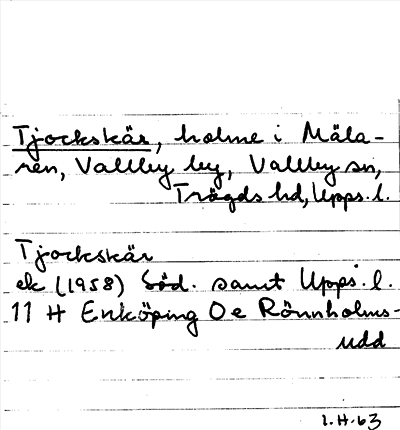 Tjockskär, holme i Mäla-
ren, Vallby by, Vallby sn,
Trögds hd, Upps. l.
Tjockskär
ek (1958) Söd. samt Upps. l.
11 H Enköping Oe Rönnholms-
udd
1.H.63